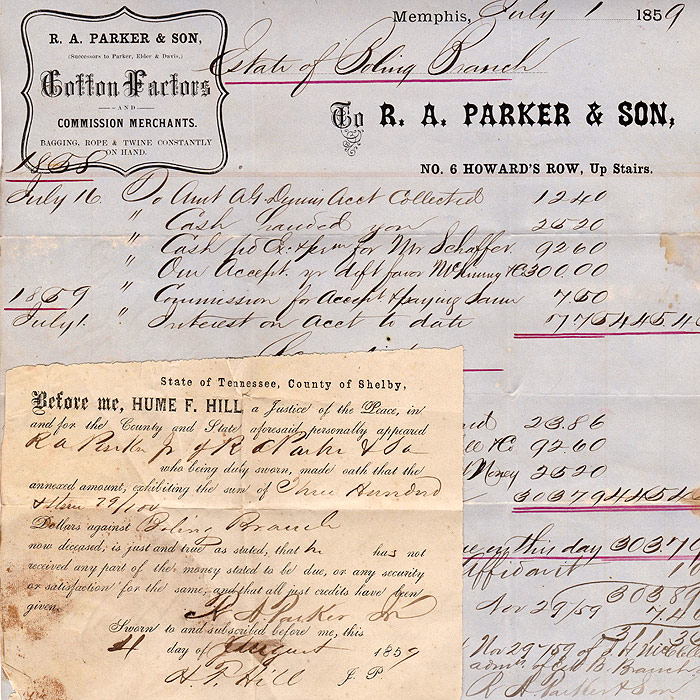 R. A. PARKER & SON,
(Successors to Parker, Elder & Davis,)
Cotton Factors
AND
COMMISSION MERCHANTS.
BAGGING, ROPE & TWINE CONSTANTLY
ON HAND.
Memphis, July 1 1859
Estate of Boling Branch
To R. A. PARKER & SON,
NO. 6 HOWARD'S ROW, Up Stairs.
1858
July 16. To Amt Acct Collected 12 40
" Cash handed you 25 20
" Cash pd Ex: for Mr Schaffer. 92 60
" Our Accept. yr dft favor 300.00
1859 " Commission for Accept & paying Same 7 50
July 1. " Interest on Acct to date 
State of Tennessee, County of Shelby,
Before me, HUME F. HILL a Justice of the Peace, in
and for the County and State aforesaid personally appeared
R A Parker Jr of R A Parker & So
who being duly sworn, made oath that the
annexed amount, exhibiting the sum of Three Hundred
& three 79/100
Dollars against Boling Branch
now deceased, is just and true as stated, that he has not
received any part of the money stated to be due, or any security
or satisfaction for the same, and that all just credits have been
given.
R A Parker Jr
Sworn to and subscribed before me, this
4 day of August 1859
H. F. Hill J. P.
23.86
92.60
Money 25 20
303 79 454 54
this day 303.79
Affidavit 10
303.89
Nov 29/59 7.40
Nov 29/59 of J. H.
admr. of B. Branch
R. A. Parker & Son